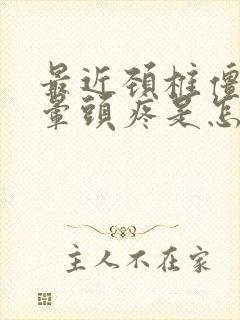 最近頚柱僵
暈頭疼是怎
主人不在家